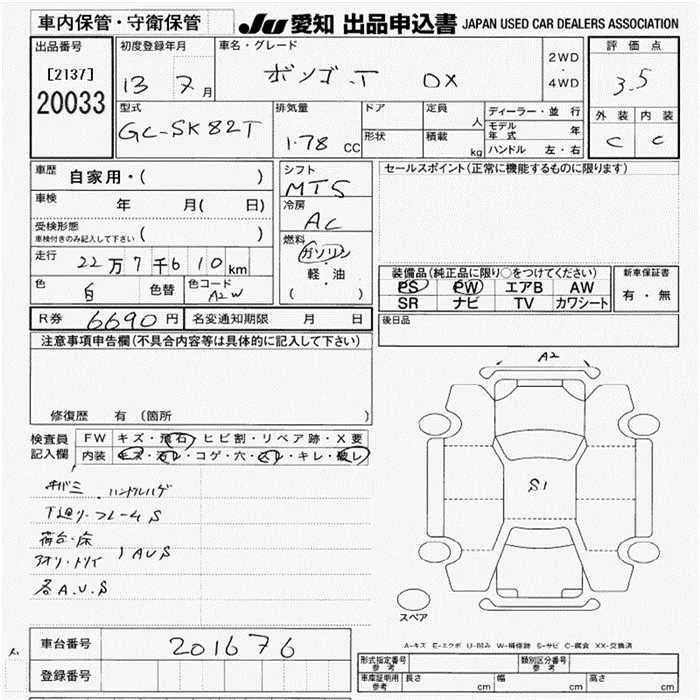 車内保管・守衛保管
JU 愛知 出品申込書 JAPAN USED CAR DEALERS ASSOCIATION
出品番号
[2137]
20033
初度登録年月
13 7月
車名・グレード
ボンゴ T DX
2WD
・
4WD
評価点
3.5
外装 内装
C C
型式
GC-SK82T
排気量
1.78 CC
ドア
形状
定員 人
積載 kg
ディーラー・並行
モデル年式 年
ハンドル 左・右
車歴 自家用・( )
車検 年 月( 日)
受検形態
車検付きのみ記入して下さい ( )
走行 22万7千610km
色 白 色替 色コード A2W
シフト
MT5
冷房
AC
燃料
ガソリン
・
軽・油
( )
セールスポイント(正常に機能するものに限ります)
装備品(純正品に限り〇をつけてください)
PS PW エアB AW
SR ナビ TV カワシート
新車保証書
有・無
R券 6690円 名変通知期限 月 日
後日品
注意事項申告欄(不具合内容等は具体的に記入して下さい)
修復歴 有(箇所 )
検査員記入欄
FW キズ・飛石・ヒビ割・リペア跡・X要
内装 キズ・汚レ・コゲ・穴・スレ・キレ・破レ
キバミ ハンドルハゲ
下廻り・フレームS
荷台・床
アオリ・トリイ } AUS
各A.U.S
A2
S1
スペア
A-キズ E-エクボ U-凹み W-補修跡 S-サビ C-腐食 XX-交換済
車台番号 201676
登録番号
形式指定番号
参考
類別区分番号
参考
車庫証明用
参考
長さ cm 幅 cm 高さ cm